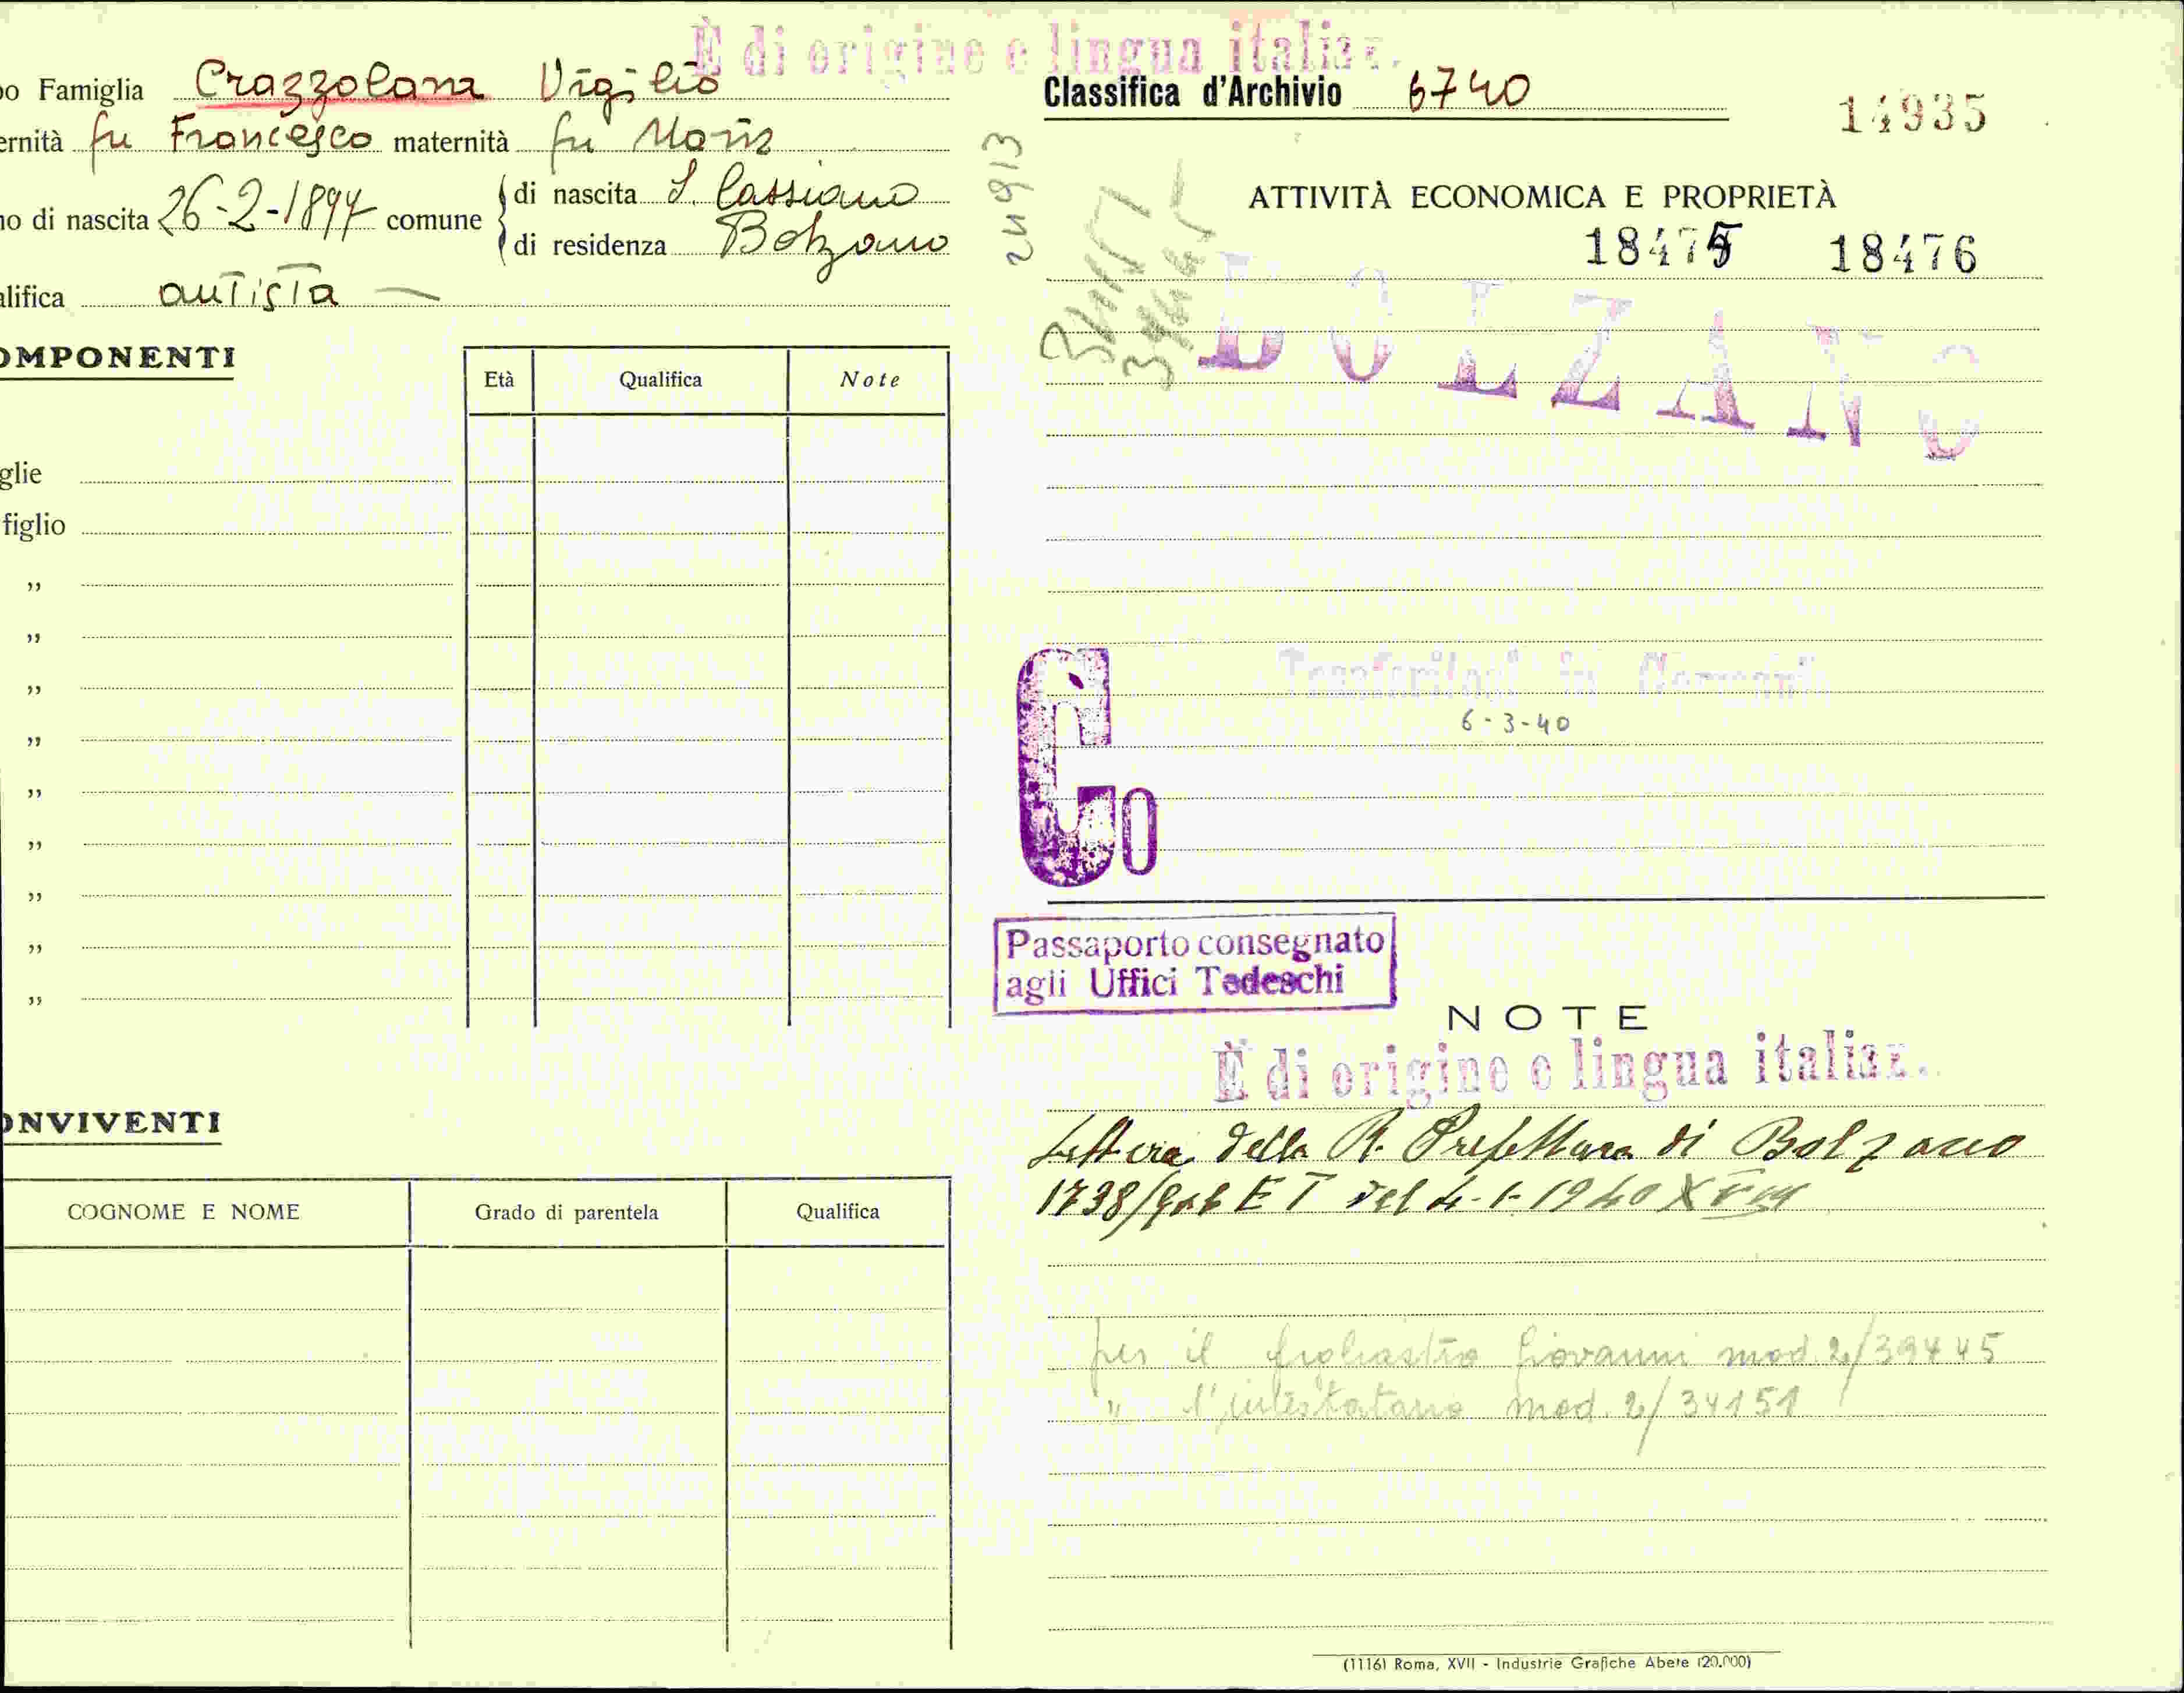 È di origine e lingua italian.
o Famiglia Crazzolara Vigilio
ernità fu Francesco maternità fu Maria
no di nascita 26-2-1897 comune
di nascita S. Cassiano
di residenza Bolzano
alifica autista
OMPONENTI
Età Qualifica Note
glie
figlio
„
„
„
„
„
„
„
„
„
ONVIVENTI
COGNOME E NOME Grado di parentela Qualifica
Classifica d'Archivio 6740
14935
24913
34151
39445
ATTIVITÀ ECONOMICA E PROPRIETÀ
18475 18476
BOLZANO
Trasferitosi in Germania
6-3-40
Co
Passaporto consegnato
agli Uffici Tedeschi
NOTE
È di origine e lingua italian.
Lettera della R. Prefettura di Bolzano
1738/Gab E T del 4-1-1940 XVIII
per il figliastro Giovanni mod. 2/39445
" l'intestatario mod. 2/34151
(1116) Roma, XVII - Industrie Grafiche Abete (20.000)